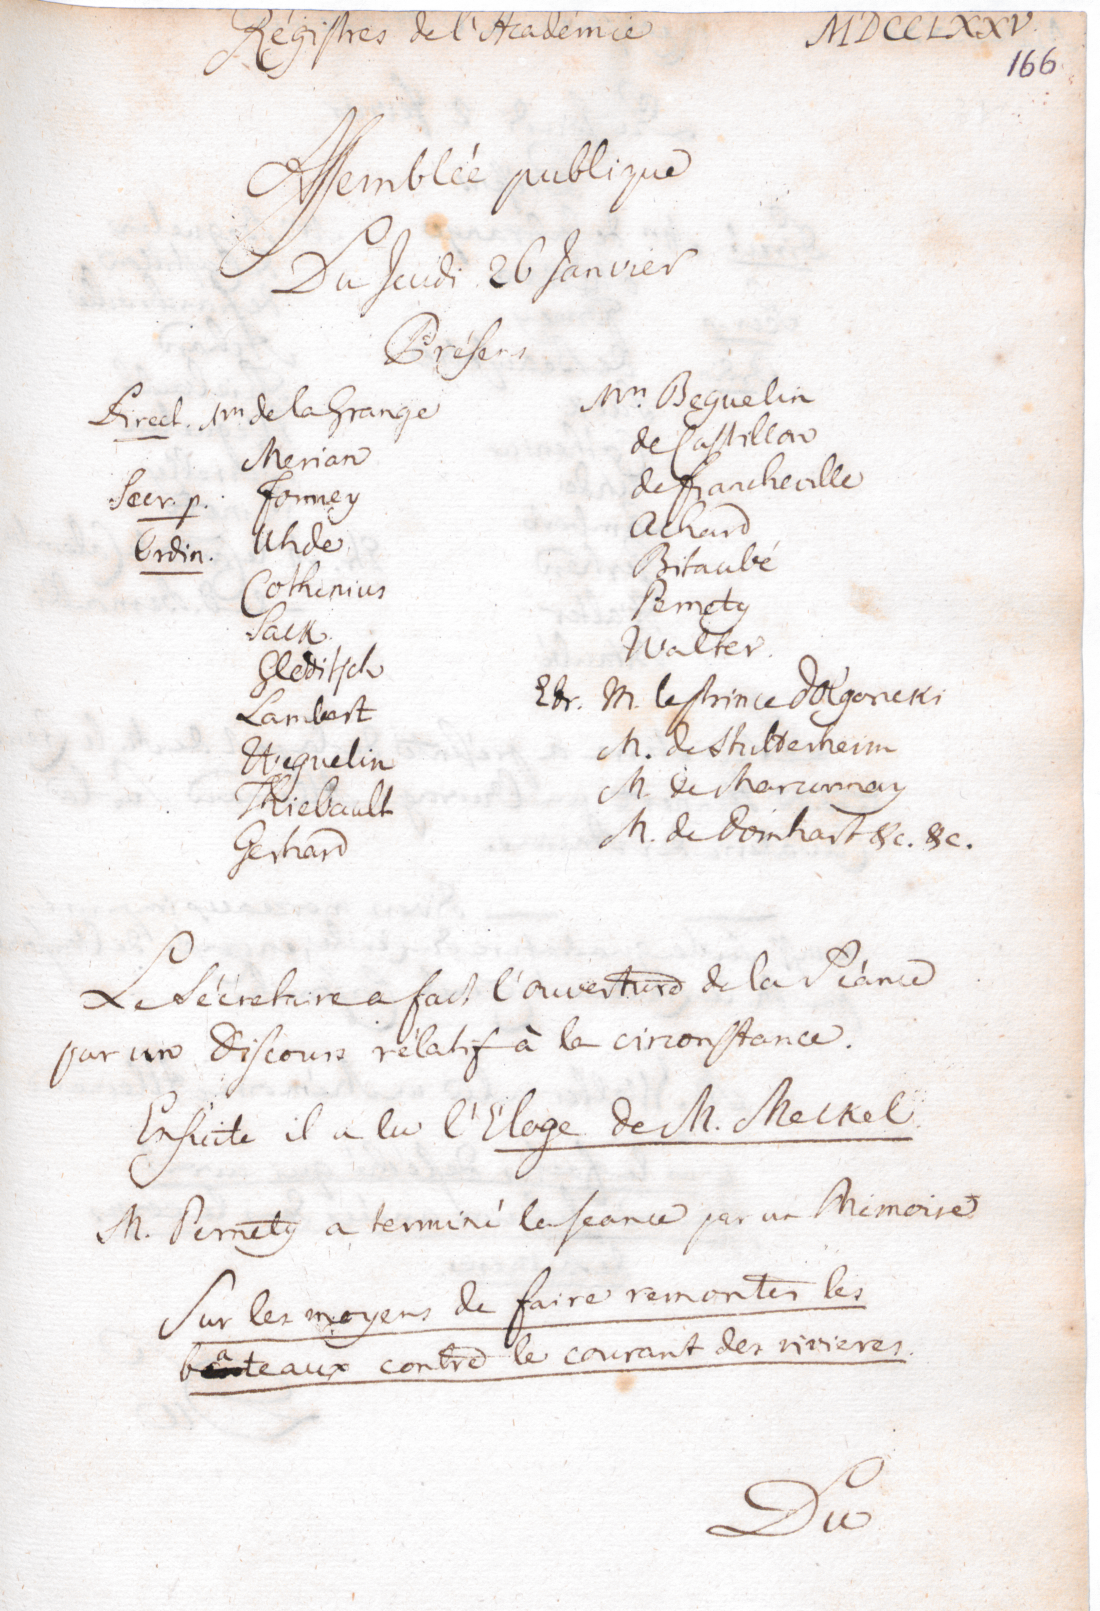 Régistres de l'Académie MDCCLXXV.
166
Assemblée publique
Du Jeudi 26 Janvier
Présens
Direct. Mrs. de la Grange
Merian
Secr. p. Formey
Ordin. Uhde
Cothenius
Sack
Gleditsch
Lambert
Weguelin
Thiebault
Gerhard
Mrs. Beguelin
de Castillon
de Francheville
Achard
Bitaubé
Pernety
Walter.
Etr. M. le Prince Dolgorucki
M. de Stutterheim
M. de Marconnay
M. de Domhart &c. &c.
Le Sécretaire a fait l'ouverture de la Séance
par un Discours rélatif à la circonstance.
Ensuite il a lu l'Eloge de M. Meckel.
M. Pernety a terminé la séance par un Mémoire
Sur les moyens de faire remonter les
bateaux contre le courant des rivieres.
Du